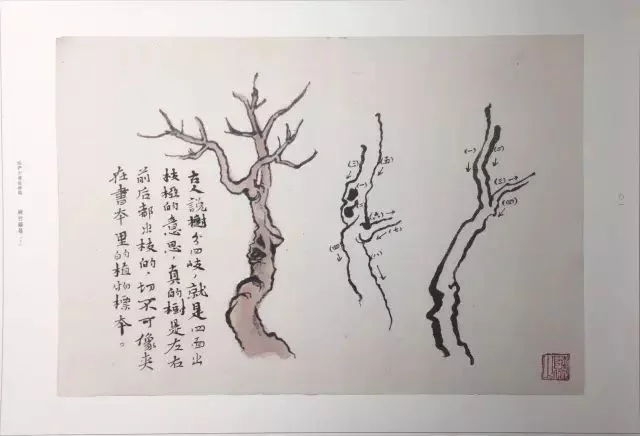 古人說樹分四歧，就是四面出
枝椏的意思，真的樹是左右
前后都出枝的，切不可像夾
在書本里的植物標本。
(一)
(二)
(三)
(四)
(五)
(六)
(七)
(一)
(二)
(三)
(四)